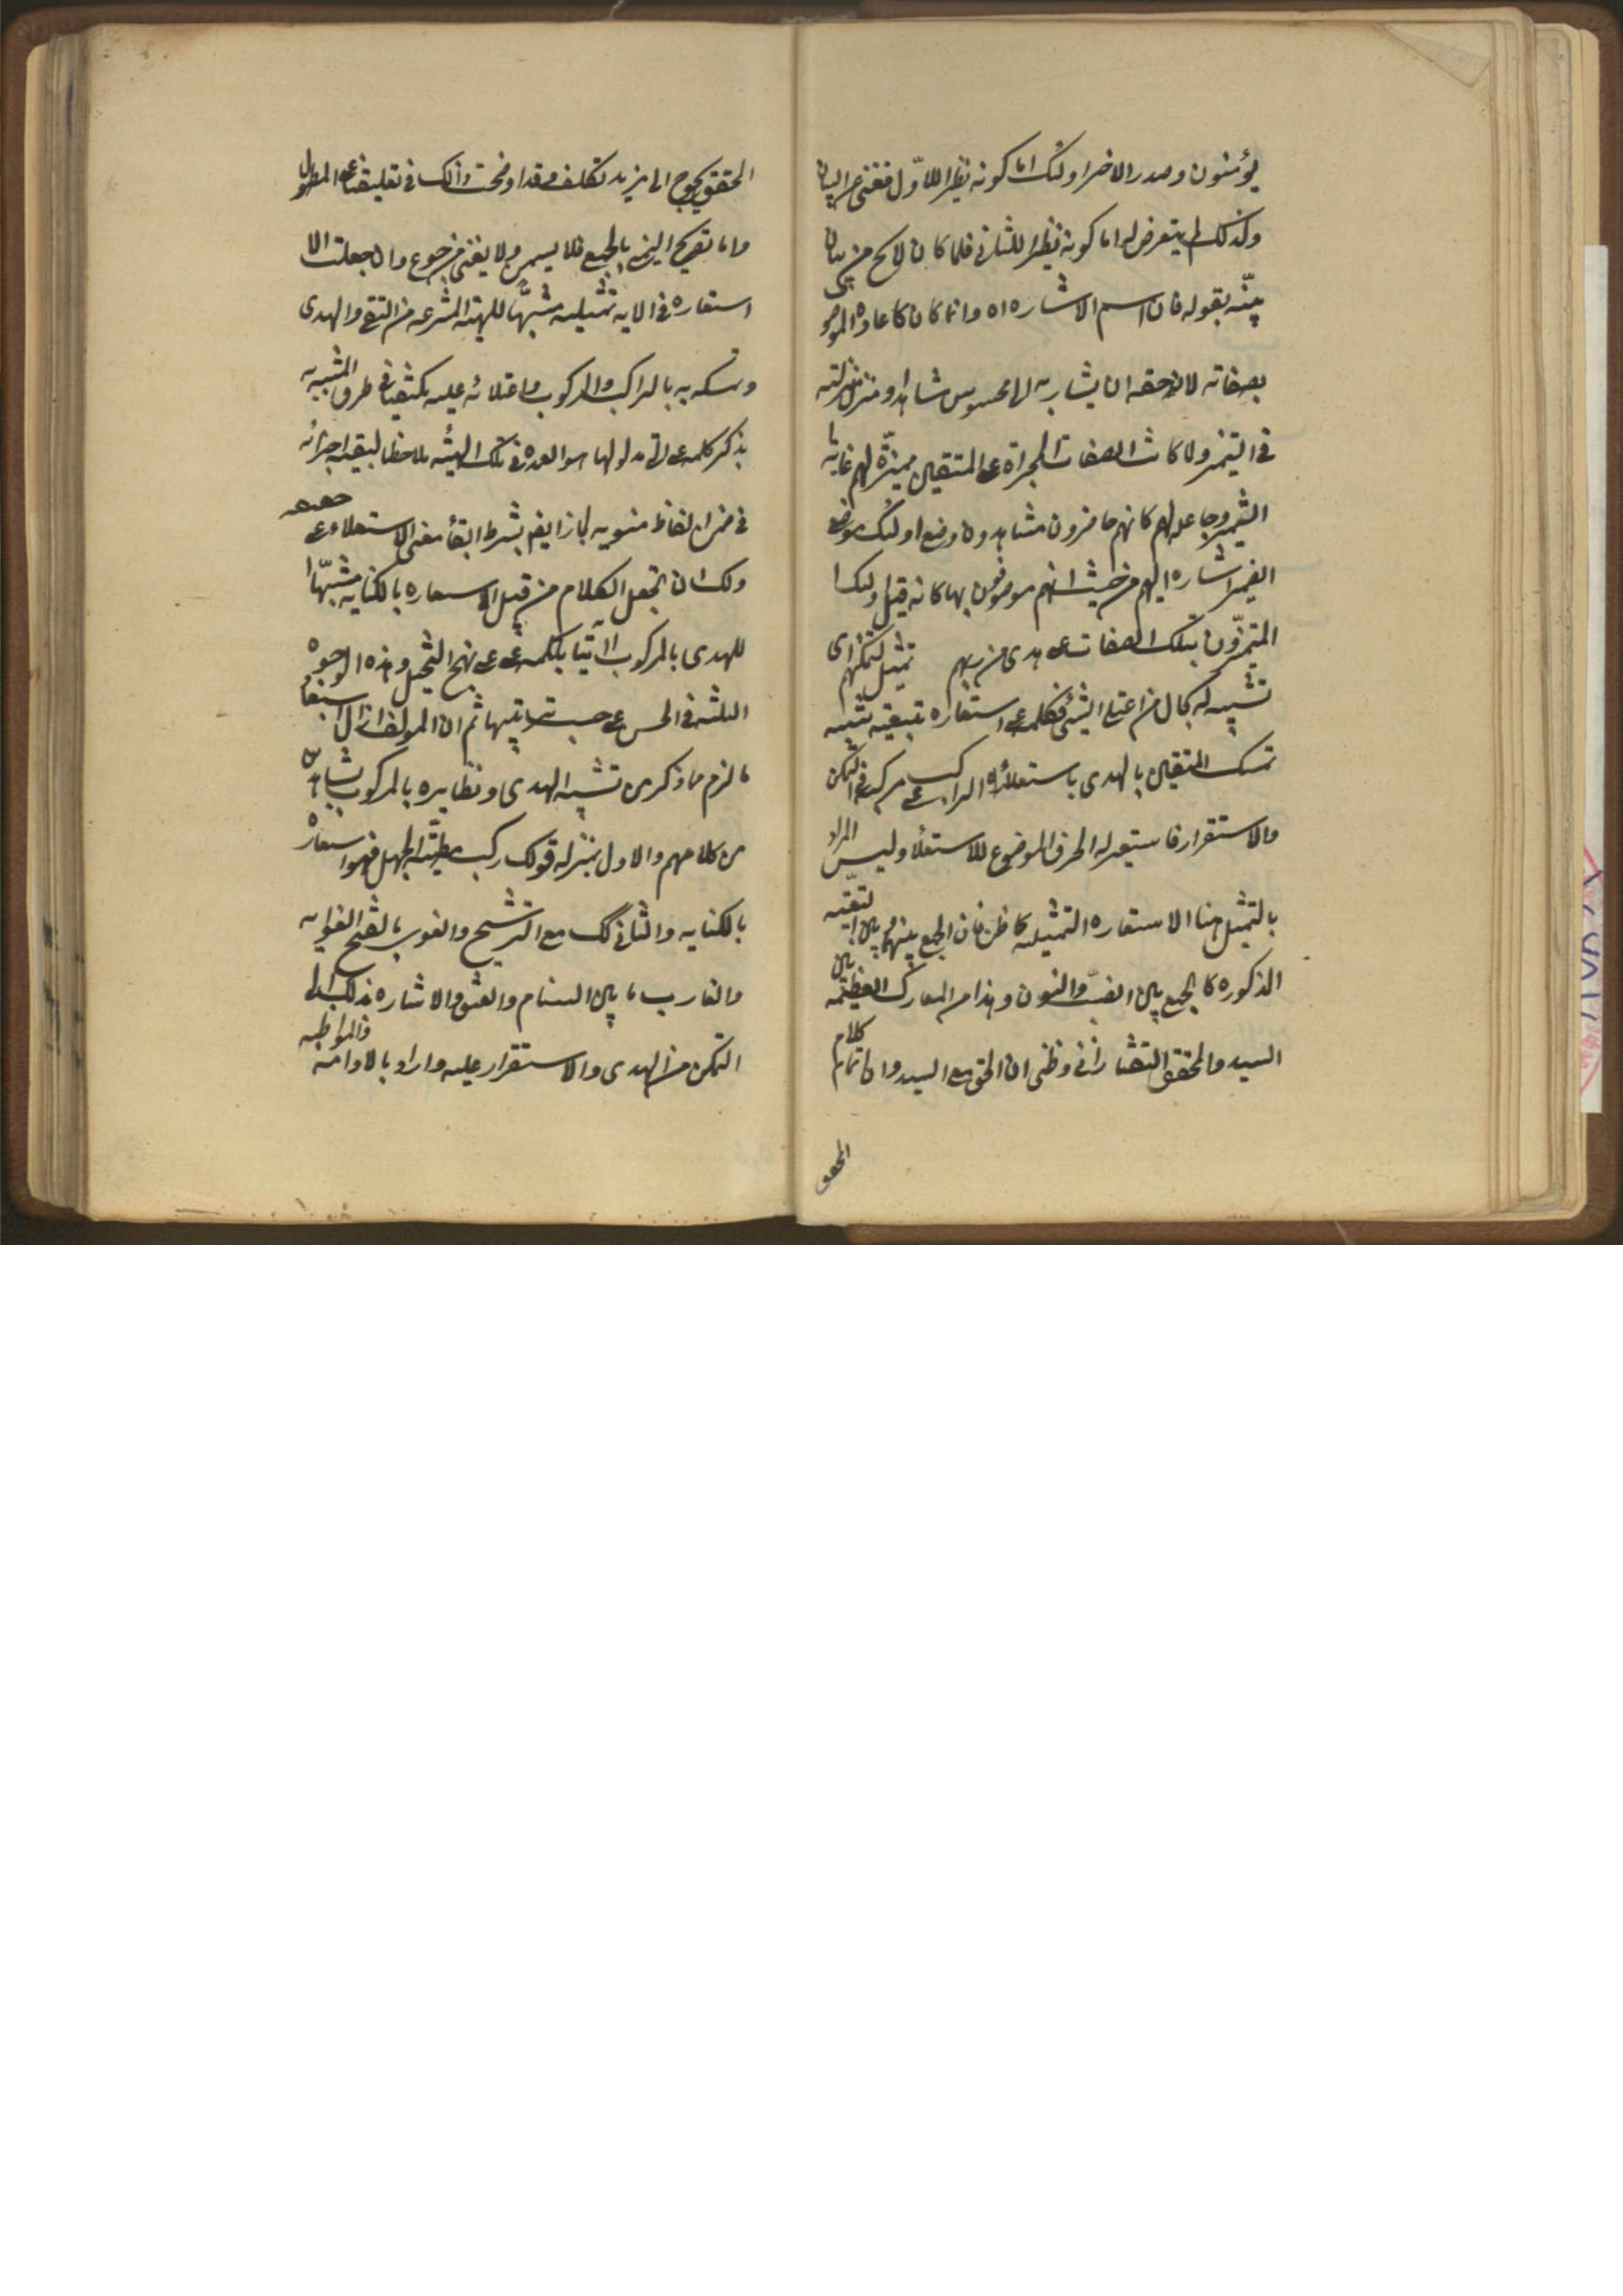 يؤمنون وصدر الاخر اولئك اما كونه نظيرا للاول فغنى عن البيان
ولذلك لم يتعرض له اما كونه نظيرا للثانى فلما كان لا يخ من بيان
بيّنه بقوله فان اسم الاشاره اه وانما كان كاعادة الموصو
بصفاته لان حقه ان يشار به الى محسوس شاهد او منزل منزلته
فى التميز ولما كانت الصفات المجراة على المتقين مميزة لهم غاية
التميز وجاعله لهم كانهم حاضرون مشاهدون وضع اولئك موضع
الضمير اشاره اليهم من حيث انهم موصوفون بها كانه قيل اولئك
المتميزون بتلك الصفات على هدى من ربهم تمثيل لتمكنهم اى
تشبيه له بحال من اعتلى الشئ فكلمة على استعاره تبعيه تشبيه
تمسك المتقين بالهدى باستعلاء الراكب على مركبه فى التمكن
والاستقرار فاستعير له الحرف الموضوع للاستعلاء وليس المراد
بالتمثيل هنا الاستعاره التمثيليه كما ظن فان الجمع بينهما وبين التبعيه
المذكوره كالجمع بين الضب والنون وهذا من المعارك العظيمه بين
السيد والمحقق التفتازانى وظنى ان الحق مع السيد وان اتمام كلام
المحقق
المحقق يحوج الى مزيد تكلف وقد اوضحت ذلك فى تعليقات على المطول
واما تصريح اليمنى بالجمع فلا يسمن ولا يغنى من جوع وان جعلت الا
استعاره فى الايه تمثيليه مشبها للهيئة المنتزعه من التقى والهدى
وتمسكه به بالراكب والمركوب واعتلائه عليه مكتفيا فى طرف المشبه به
بذكر كلمة على التى مدلولها هو العمده فى تلك الهيئه ملاحظا لبقية اجزائه
فى ضمن الفاظ منويه جاز ايضا بشرط ابقاء معنى الاستعلاء على حقيقته
ولك ان تجعل الكلام من قبيل الاستعاره بالكنايه مشبها
للهدى بالمركوب اتيا بكلمة على على نهج التخييل وهذه الوجوه
الثلثه فى الحسن على حسب ترتيبها ثم ان المولف ازال استبعاد
ما لزم مما ذكر من تشبيه الهدى ونظايره بالمركوب بشاهدين
من كلامهم والاول بمنزله قولك ركب مطيّة الجهل فهو استعاره
بالكنايه والثانى كك مع الترشيح والغوى بالفتح الغوايه
والغارب ما بين السنام والعنق والاشاره بذلك الى
التمكن من الهدى والاستقرار عليه واراد بالادامه والمواظبه